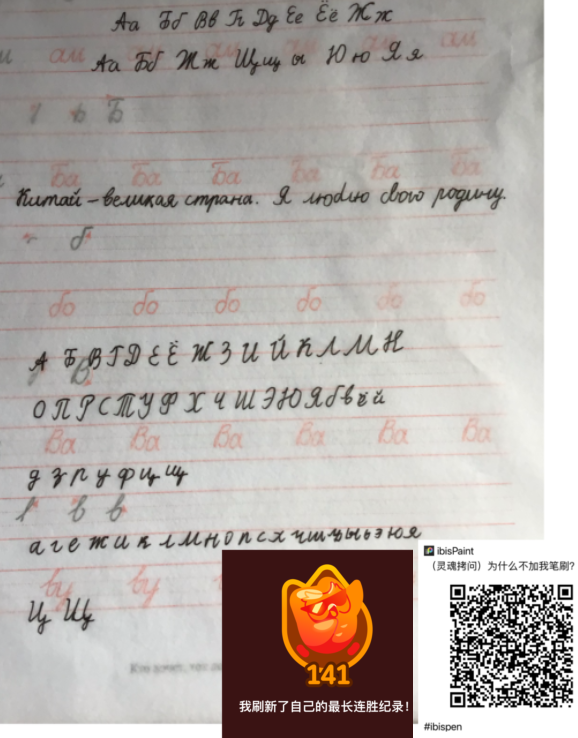 Аа Бб Вв Гг Дд Ее Ёё Жж
ам ам ам ам ам ам
Аа Бб Жж Щщ ы Юю Яя
Б
Ба Ба Ба Ба Ба Ба
Китай – великая страна. Я люблю свою родину.
б
бо бо бо бо бо бо
А Б В Г Д Е Ё Ж З И Й К Л М Н
О П Р С Т У Ф Х Ч Ш Э Ю Я б в ё й
Ва Ва Ва Ва Ва Ва
д з р у ф ц щ
в в
а г е ж и к л м н о п с х ч ш ъ ы ь э ю я
ву ву
Ц Щ
141
我刷新了自己的最长连胜纪录!
ibisPaint
(灵魂拷问)为什么不加我笔刷?
#ibispen